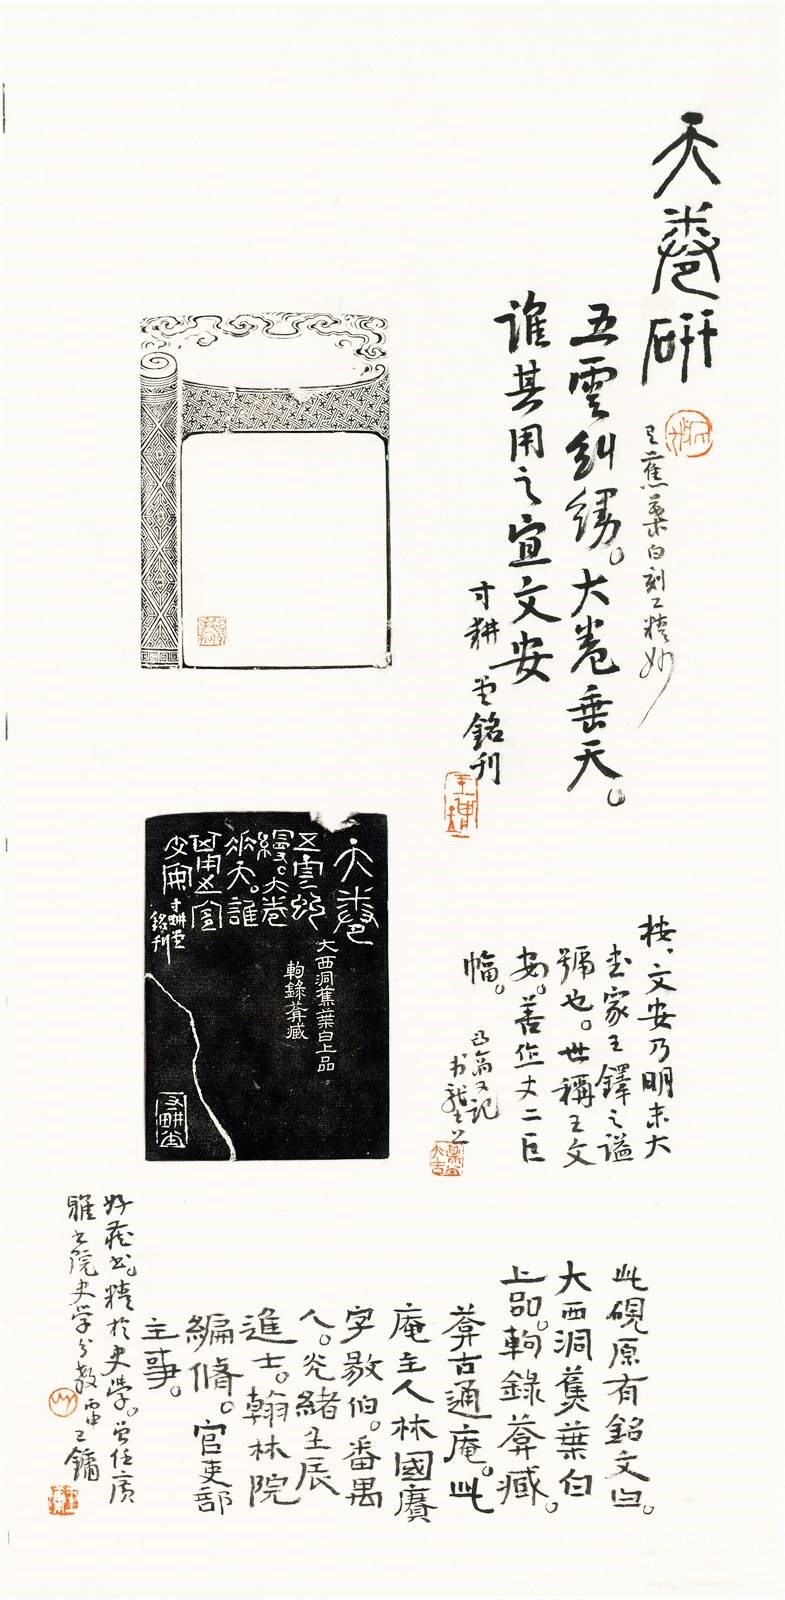 天卷研
蕉葉白刻工精妙
五雲糾縵。大卷垂天。
誰其用之宣文安
寸耕堂銘刊
天卷
五雲糾
縵。大卷
垂天。誰
其用之宣
文安
寸耕堂
銘刊
大西洞蕉葉白上品
軥錄葊藏
按、文安乃明末大
書家王鐸之謚
號也。世稱王文
安。善作丈二巨
幅。
又記
此硯原有銘文曰。
大西洞蕉葉白
上品。軥錄葊藏。
葊古通庵。此
庵主人林國賡
字敭伯。番禺
人。光緒壬辰
進士。翰林院
編脩。官吏部
主事。
好藏書。精於史學。曾任廣
雅書院史學分教 丙申 王鏞